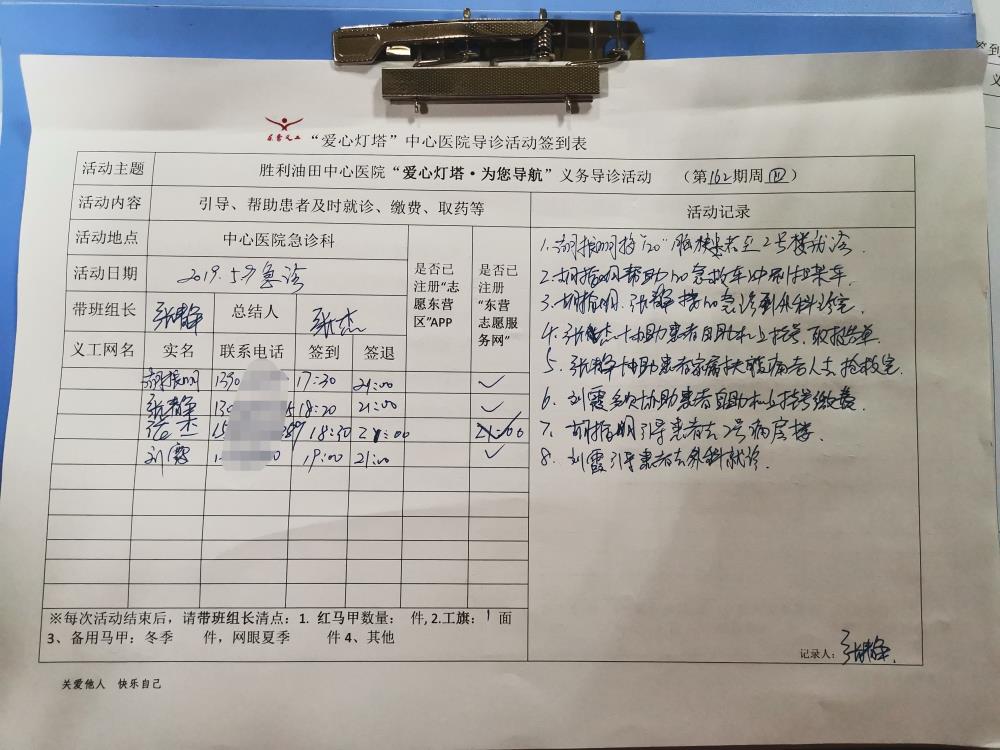 东营义工
"爱心灯塔"中心医院导诊活动签到表
活动主题 胜利油田中心医院"爱心灯塔·为您导航"义务导诊活动 （第162期周四）
活动内容 引导、帮助患者及时就诊、缴费、取药等 活动记录
活动地点 中心医院急诊科
活动日期 2019.5.9 急诊
是否已注册"志愿东营区"APP
是否已注册"东营志愿服务网"
带班组长 张静 总结人 张杰
义工网名 实名 联系电话 签到 签退
胡振明 17:30 21:00 ✓
张静 18:20 21:00 ✓
张杰 18:30 21:00 21:00
刘霞 19:00 21:00 ✓
1.胡振明接"120"服 患者至2号楼就诊.
2.胡振明帮助120急救车 车.
3.胡振明.张静接120急诊到外科诊室.
4.张杰协助患者自助机上挂号.取报告单.
5.张静协助患者家属扶 病老人去抢救室.
6.刘霞多次协助患者自助机上挂号缴费.
7.胡振明引导患者去2号病房楼.
8.刘霞引导患者去外科就诊.
※每次活动结束后，请带班组长清点：1. 红马甲数量： 件, 2.工旗：1 面
3、备用马甲：冬季 件，网眼夏季 件 4、其他
记录人：张静.
关爱他人 快乐自己